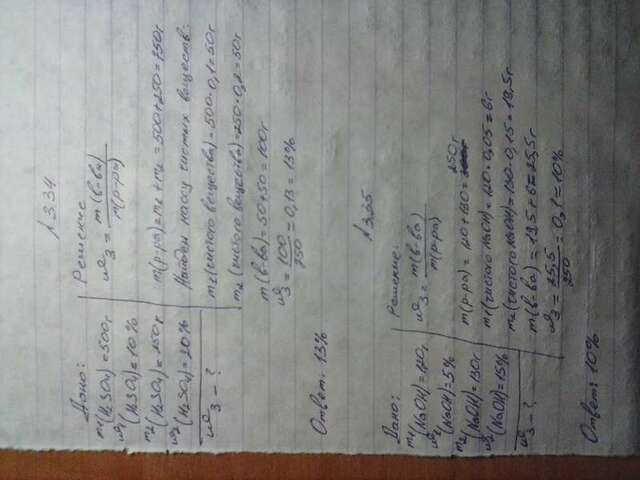 № 3.34
Дано:
m1(H2SO4)=500г
ω1(H2SO4)=10%
m2(H2SO4)=250г
ω2(H2SO4)=20%
ω3 - ?
Решение
ω3 = m(в-ва)/m(р-ра)
m(р-ра)=m1+m2=500+250=750г
Найдем массу чистых веществ:
m1(чистого вещества)=500·0,1=50г
m2(чистого вещества)=250·0,2=50г
m(в-ва)=50+50=100г
ω3=100/750=0,13=13%
Ответ: 13%
№ 3.35
Дано:
m1(NaOH)=120г
ω1(NaOH)=5%
m2(NaOH)=130г
ω2(NaOH)=15%
ω3 - ?
Решение:
ω3 = m(в-ва)/m(р-ра)
m(р-ра)=120+130=250г
m1(чистого NaOH)=120·0,05=6г
m2(чистого NaOH)=130·0,15=19,5г
m(в-ва)=19,5+6=25,5г
ω3=25,5/250=0,1=10%
Ответ: 10%